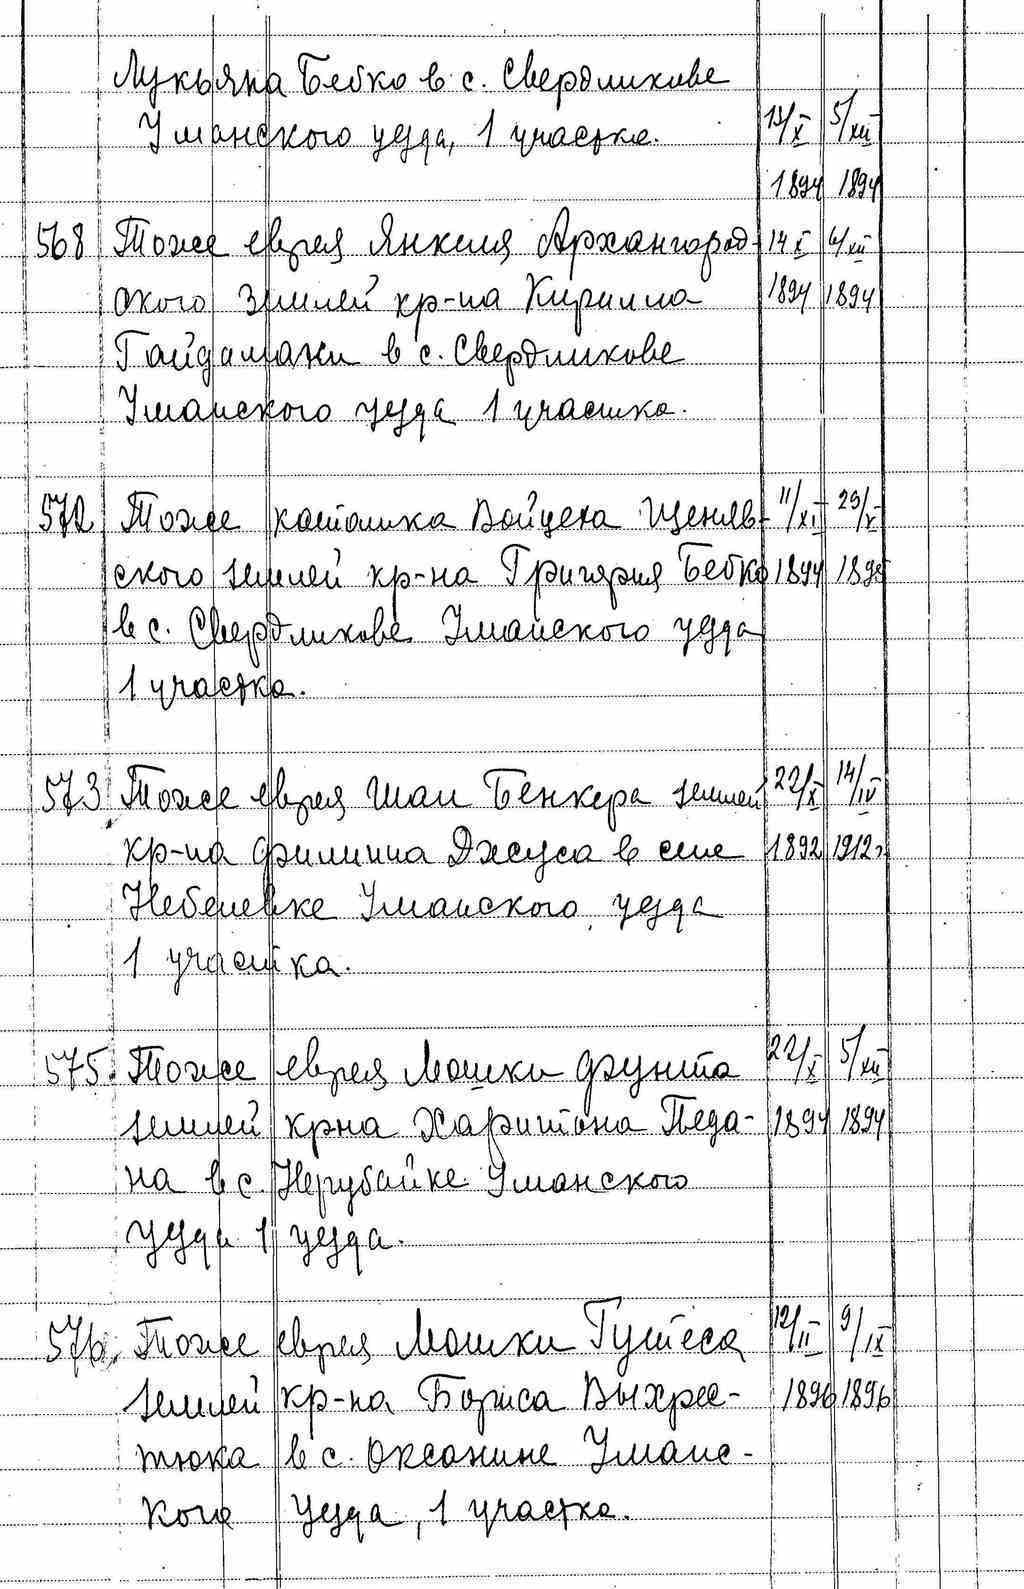 Лукьяна Бебко в с. Свердликове
Уманского уезда, 1 участка. 13/X 5/XII
1894 1894
568 Тоже еврея Янкеля Архангород- 14 X 4/XII
ского землей кр-на Кирилла 1894 1894
Гайдамаки в с. Свердликове
Уманского уезда 1 участка.
572 Тоже католика Войцеха Щеняв- 11/XI 29/V
ского землей кр-на Григория Бебко 1894 1895
в с. Свердликове Уманского уезда
1 участка.
573 Тоже еврея Шаи Бенкера землей 22/X 14/IV
кр-на Филиппа Джуса в селе 1892 1912г
Небелевке Уманского уезда
1 участка.
575. Тоже еврея Мошки Фунта 22/X 5/XII
землей крна Харитона Педа- 1894 1894
на в с. Нерубайке Уманского
уезда 1 уезда.
576. Тоже еврея Мошки Гутеса 12/II 9/IX
землей кр-на Бориса Выхрес- 1896 1896
тюка в с. Оксанине Уманс-
кого уезда, 1 участка.